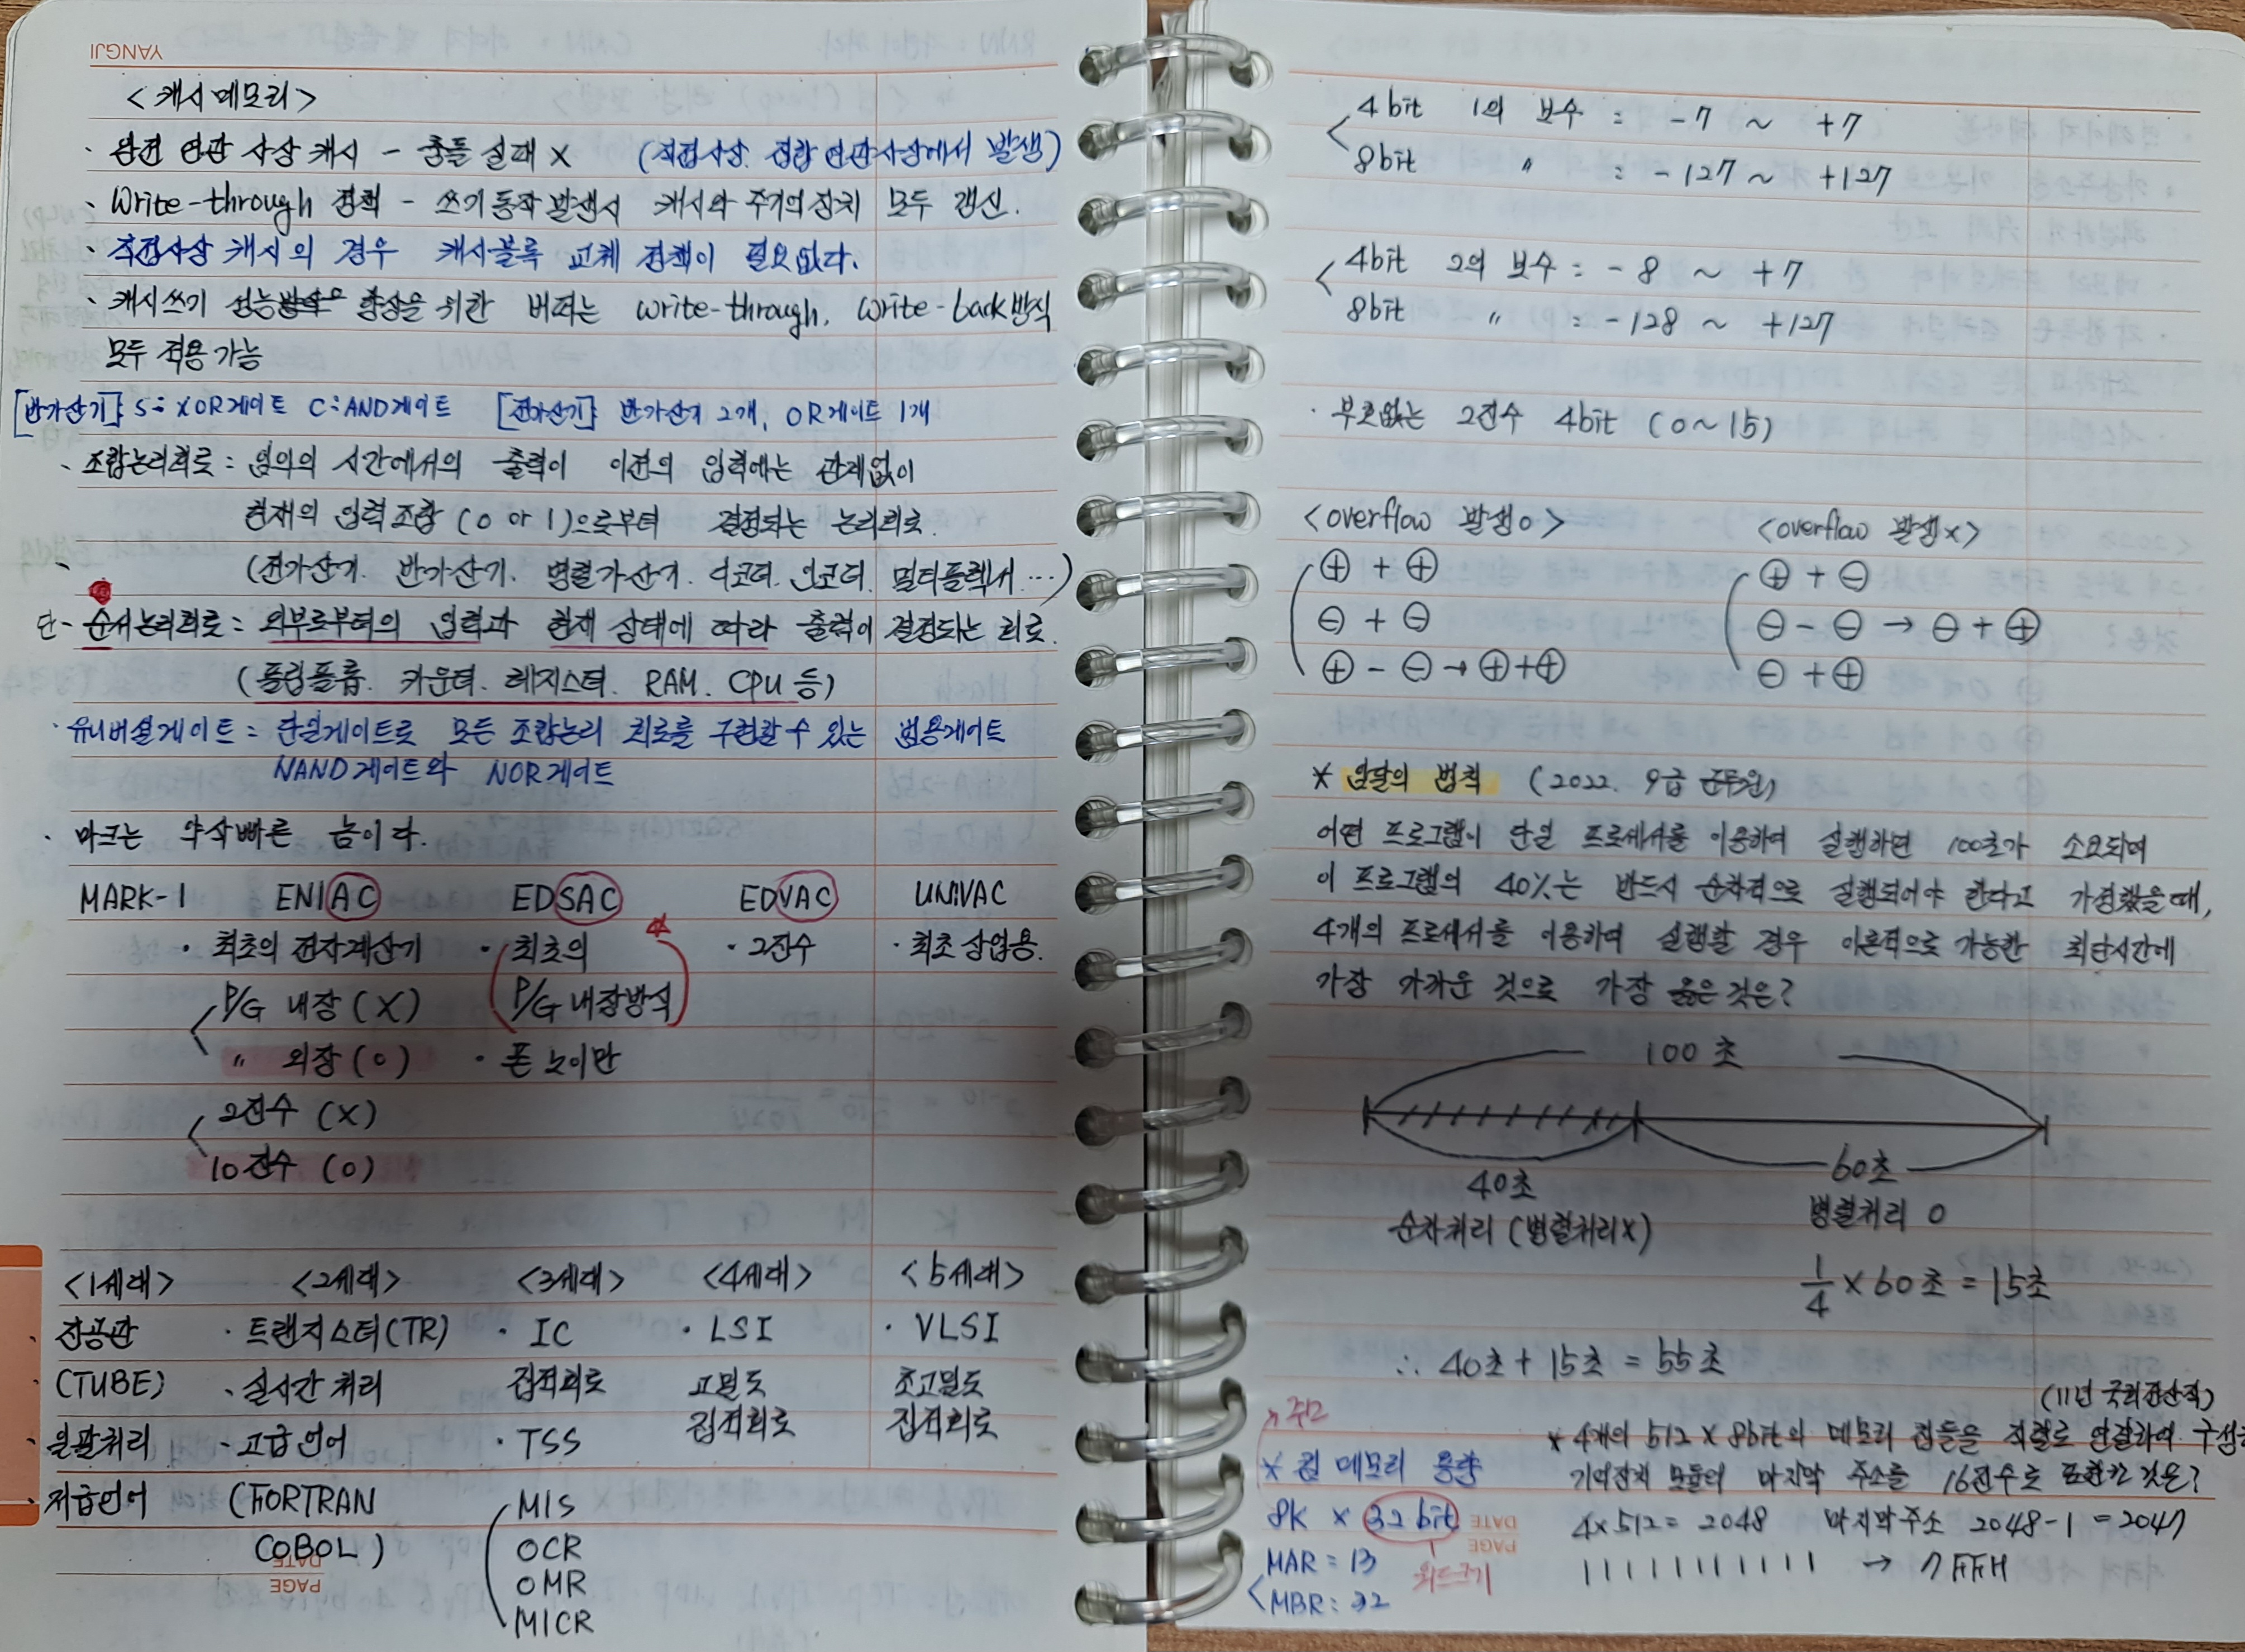 YANGJI
<캐시메모리>
· 완전 연관 사상 캐시 - 충돌 실패 X (직접사상. 집합 연관사상에서 발생)
· Write-through 정책 - 쓰기동작 발생시 캐시와 주기억장치 모두 갱신.
· 직접사상 캐시의 경우 캐시블록 교체 정책이 필요없다.
· 캐시쓰기 성능 향상을 위한 버퍼는 write-through, write-back방식
모두 적용 가능
[반가산기] S: XOR게이트 C: AND게이트 [전가산기] 반가산기 2개, OR게이트 1개
· 조합논리회로 : 임의의 시간에서의 출력이 이전의 입력에는 관계없이
현재의 입력조합 (0 or 1)으로부터 결정되는 논리회로.
(전가산기. 반가산기. 병렬가산기. 디코더. 인코더. 멀티플렉서 ...)
단- 순서논리회로 = 외부로부터의 입력과 현재 상태에 따라 출력이 결정되는 회로.
(플립플롭. 카운터. 레지스터. RAM. CPU 등)
· 유니버설게이트 = 단일게이트로 모든 조합논리 회로를 구현할 수 있는 범용게이트
NAND게이트와 NOR게이트
· 마크는 약삭빠른 놈이다.
MARK-1 ENIAC EDSAC EDVAC UNIVAC
· 최초의 전자계산기 · 최초의 · 2진수 · 최초 상업용.
P/G 내장 (X) P/G 내장방식
〃 외장 (O) · 폰 노이만
2진수 (X)
10진수 (O)
<1세대> <2세대> <3세대> <4세대> <5세대>
· 진공관 · 트랜지스터(TR) · IC · LSI · VLSI
(TUBE) · 실시간 처리 집적회로 고밀도 초고밀도
· 일괄처리 · 고급언어 · TSS 집적회로 집적회로
· 저급언어 (FORTRAN MIS
COBOL) OCR
OMR
MICR
DATE
PAGE
4bit 1의 보수 : -7 ~ +7
8bit 〃 : -127 ~ +127
4bit 2의 보수 : -8 ~ +7
8bit 〃 : -128 ~ +127
· 부호없는 2진수 4bit (0~15)
<overflow 발생O> <overflow 발생X>
⊕ + ⊕ ⊕ + ⊖
⊖ + ⊖ ⊖ - ⊖ → ⊖ + ⊕
⊕ - ⊖ → ⊕+⊕ ⊖ + ⊕
* 암달의 법칙 (2022. 9급 군무원)
어떤 프로그램이 단일 프로세서를 이용하여 실행하면 100초가 소요되며
이 프로그램의 40%는 반드시 순차적으로 실행되어야 한다고 가정했을때,
4개의 프로세서를 이용하여 실행할 경우 이론적으로 가능한 최단시간에
가장 가까운 것으로 가장 옳은 것은?
100초
40초 60초
순차처리 (병렬처리X) 병렬처리 O
1/4 × 60초 = 15초
∴ 40초 + 15초 = 55초
(11년 국회전산직)
* 4개의 512 × 8bit의 메모리 칩들을 직렬로 연결하여 구성
기억장치 모듈의 마지막 주소를 16진수로 표현한 것은?
4×512 = 2048 마지막주소 2048-1 = 2047
11111111111 → 7FFH
주소
* 램 메모리 용량
8K × 32 bit
MAR = 13 워드크기
MBR : 32
DATE
PAGE